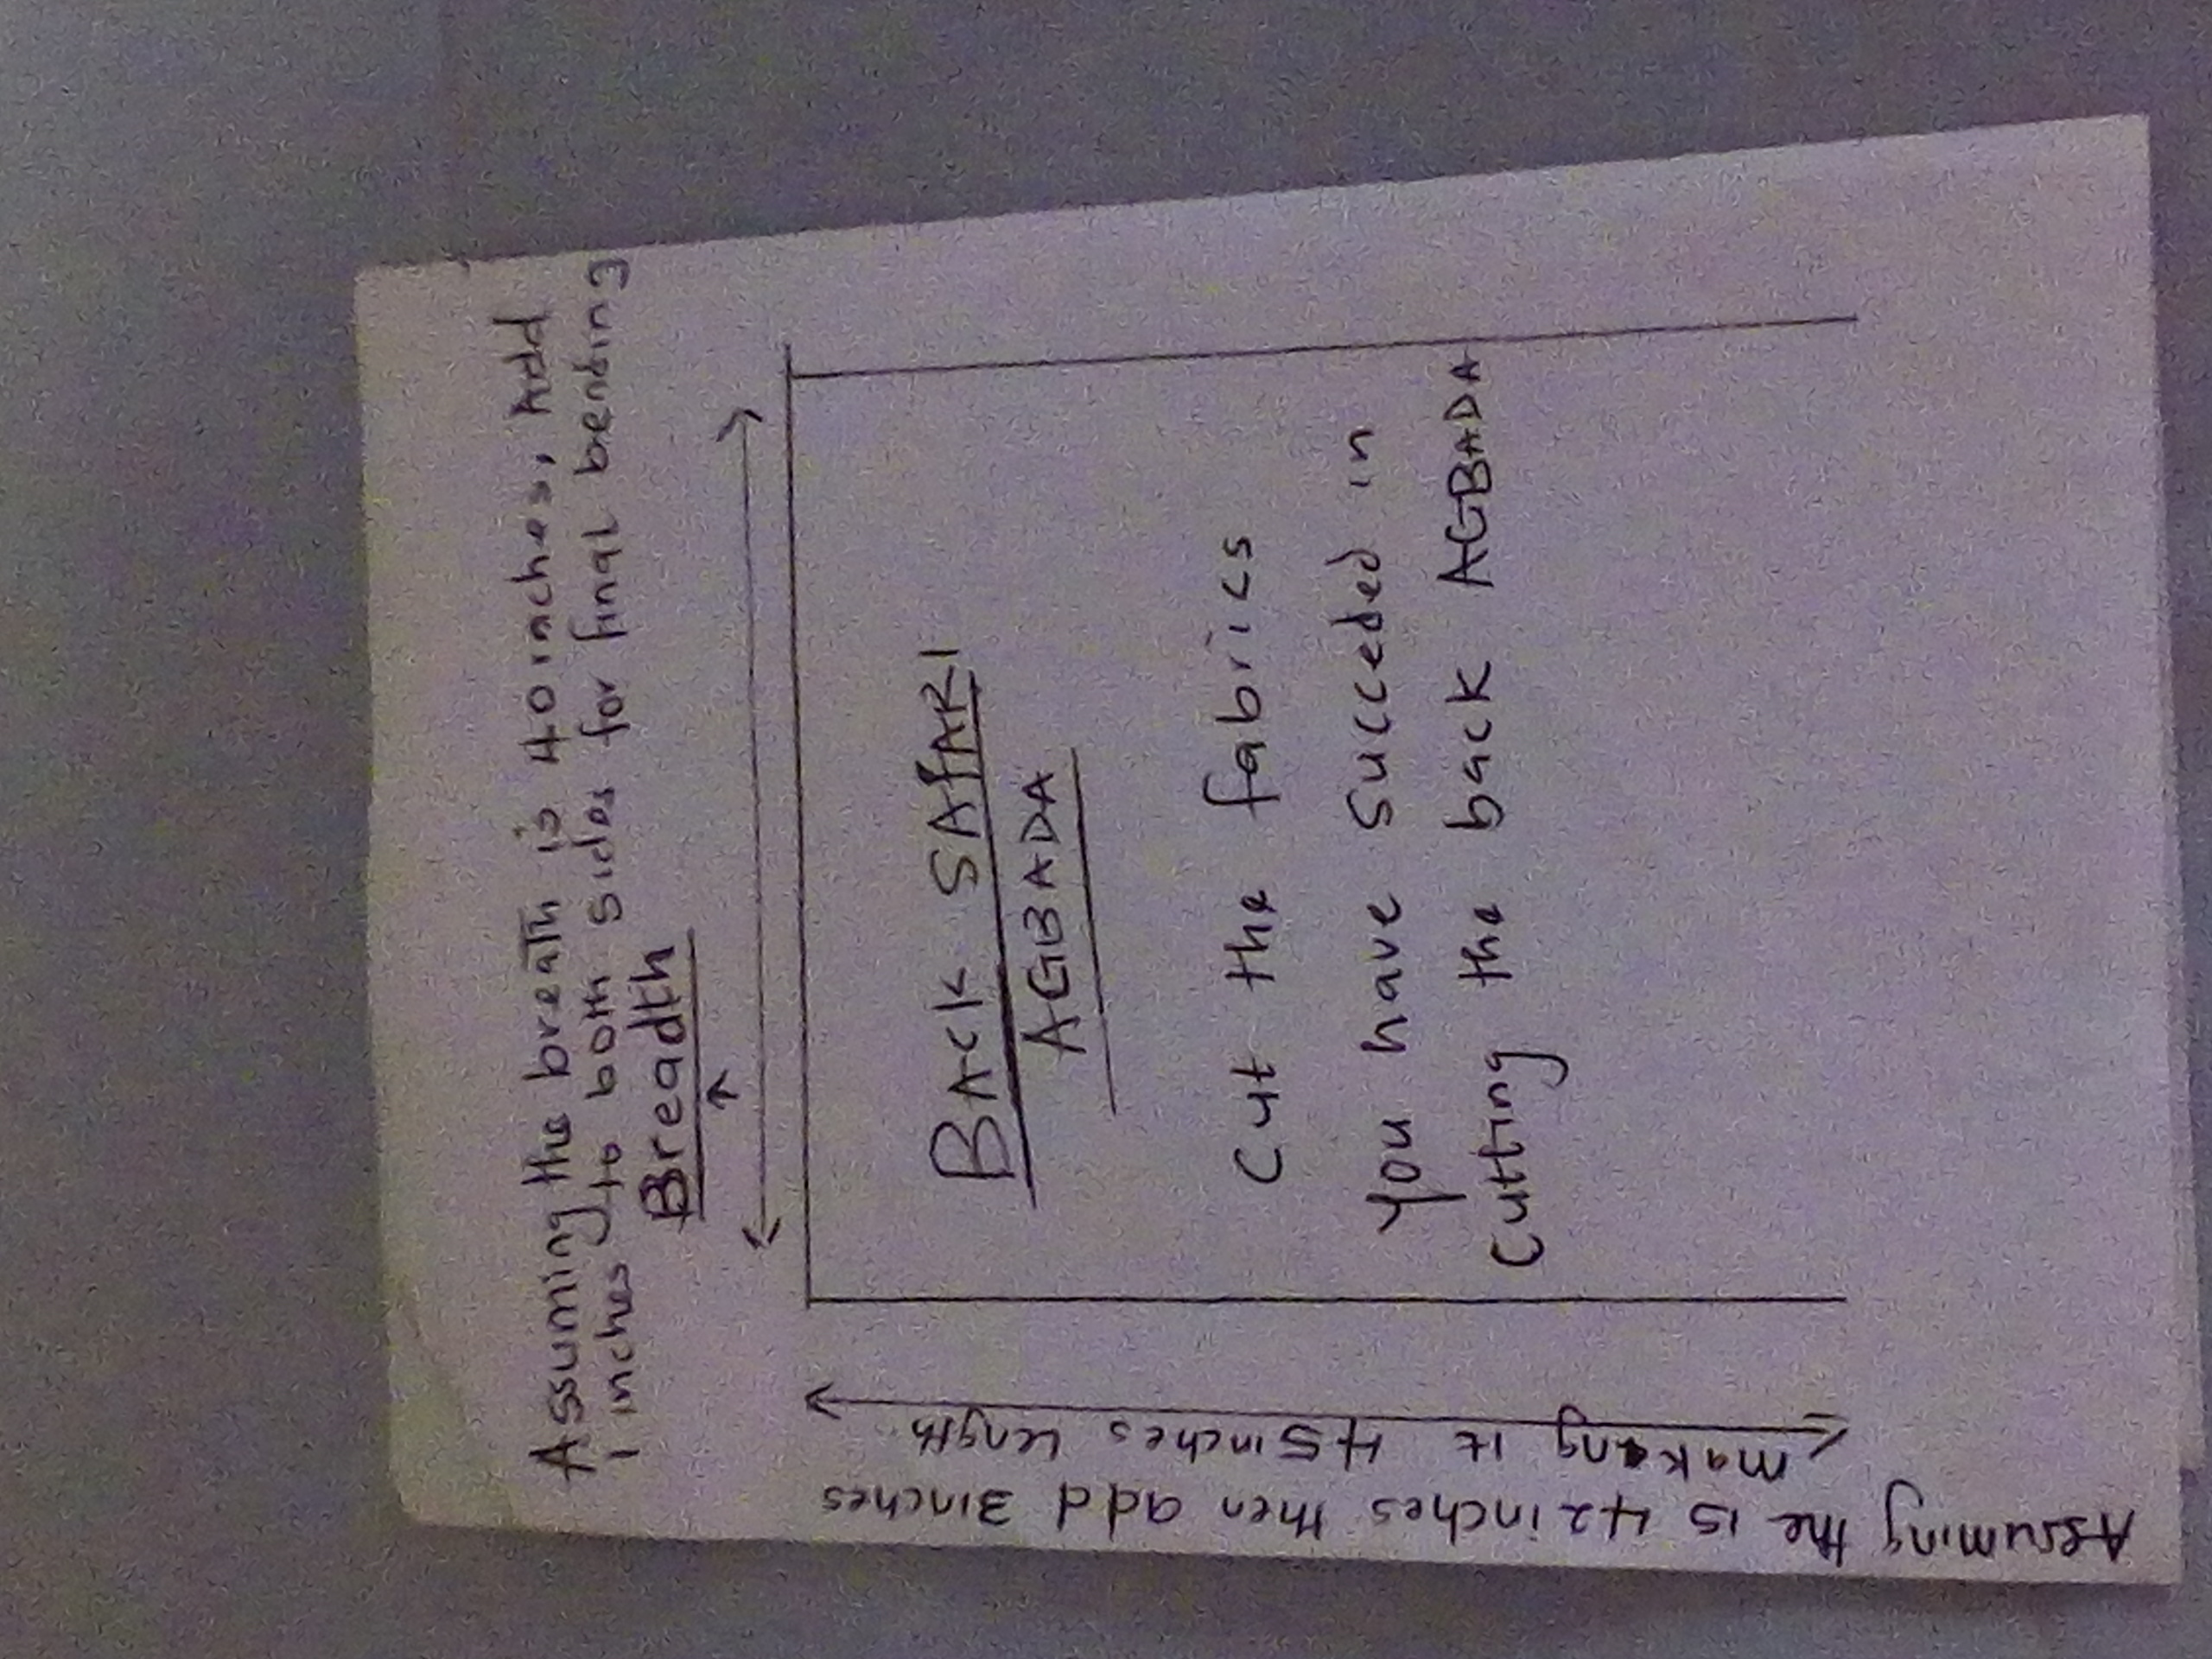 Assuming the breath is 40inches, Add
1 inches to both sides for final bending
Breadth
BACK SAFARI
AGBADA
Cut the fabrics
You have succeded in
Cutting the back AGBADA
Assuming the is 42inches then add 3inches
making it 45inches length